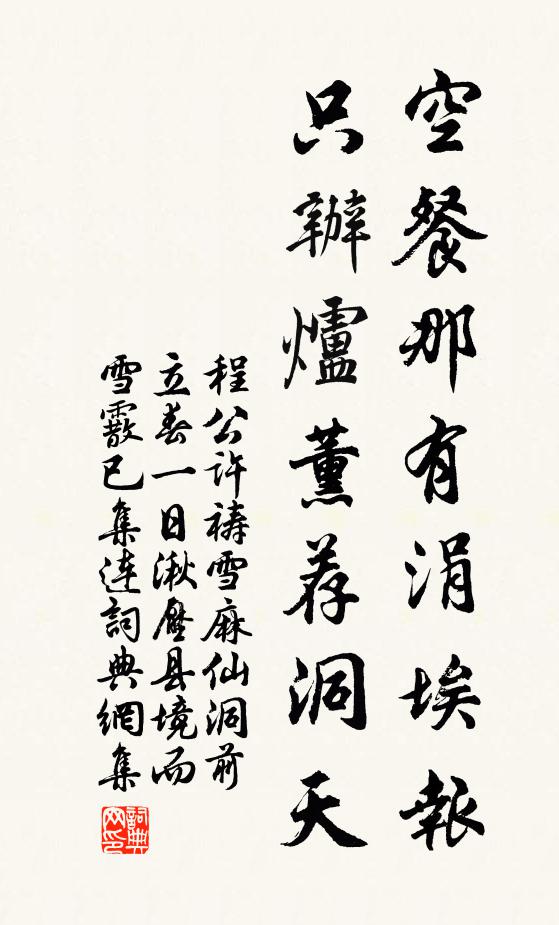 空餐那有涓埃報
只辦爐薰荐洞天
程公許禱雪麻仙洞前
立春一日湫壓县境而
雪霰已集連詞典網集
詞典
网印